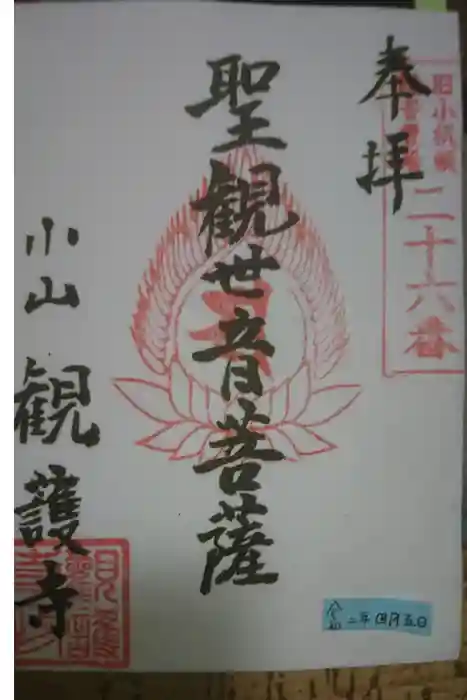 奉拝
旧小机領
二十六番
聖観世音菩薩
小山 観護寺
令和二年四月五日